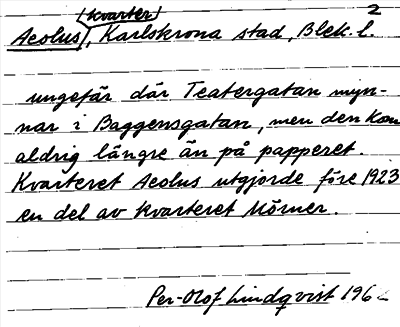 2
kvarter
Aeolus, Karlskrona stad, Blek. l.
ungefär där Teatergatan myn-
nar i Baggensgatan, men den kom
aldrig längre än på papperet.
Kvarteret Aeolus utgjorde före 1923
en del av kvarteret Mörner.
Per-Olof Lindqvist 196